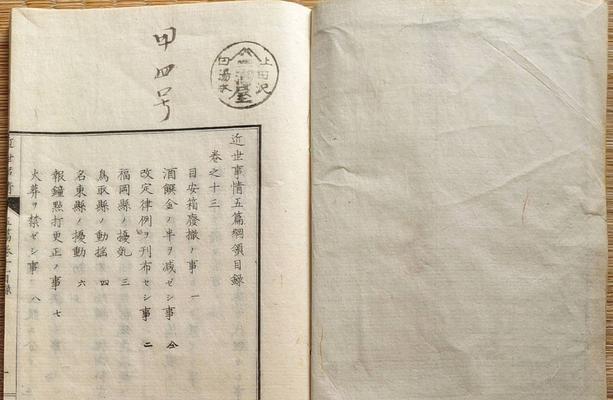 甲四号
上田沢
湯屋
田湯沢
近世事情五篇綱領目録
巻之十三
目安箱廃撤ノ事 一
酒饌金ノ半ヲ減ゼシ事 仝
改定律例ヲ刊布セシ事 二
福岡縣ノ擾乱 三
鳥取縣ノ動揺 四
名東縣ノ擾動 六
報鐘點打更正ノ事 七
火葬ヲ禁ゼシ事 八